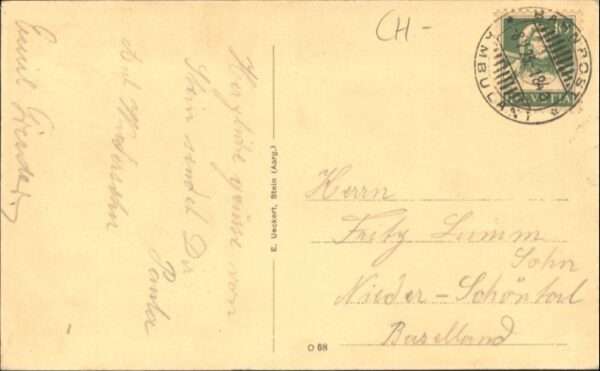 CH -
BAHNPOST
AMBULANT
10
HELVETIA
Herzliche Grüsse von
Stein sendet Dir
Auf Wiedersehn
Emil
E. Ueckert, Stein (Aarg.)
Herrn
Fritz Lümm
Sohn
Nieder-Schöntal
Baselland
O 68